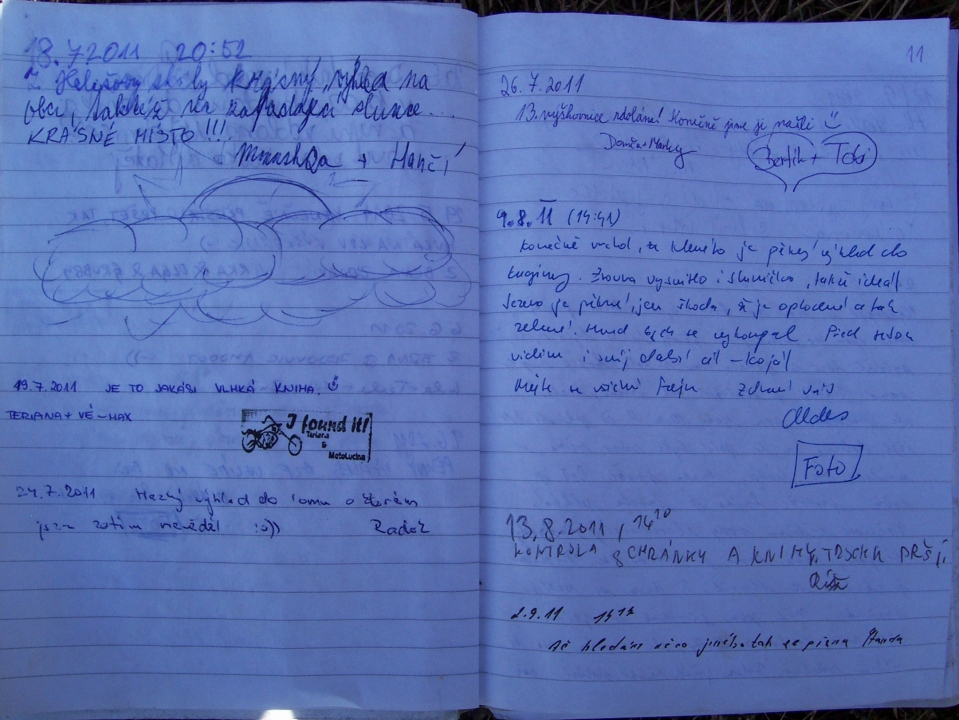 18.7.2011 20:52
Z skály krásný výhled na
obci, také na zapadající slunce...
KRÁSNÉ MÍSTO!!!
+ Hančí
19.7.2011 JE TO JAKÁSI VLHKÁ KNIHA.
TERIANA + VÉ-MAX
I found it!
Teriana
&
MotoLucina
24.7.2011 Hezký výhled do lomu o kterém
jsem zatím nevěděl :o)) Radek
11
26.7.2011
13. výškovnice zdolána! Konečně jsme ji našli
Bertík + Tobi
9.8.11 (14:41)
Konečně vrchol, ze kterého je pěkný výhled do
krajiny. Zrovna vysvitlo i sluníčko, takže ideál!
Jezero je pěkné, jen škoda, že je oplocené a tak
zelené. Hned bych se vykoupal. Před sebou
vidím i svůj další cíl
Mějte se všichni fajn Zdraví vás
Foto
13.8.2011, 14:10
KONTROLA SCHRÁNKY A KNIHY, TROCHU PRŠÍ
2.9.11
hledám něco jiného tak se píšu Standa